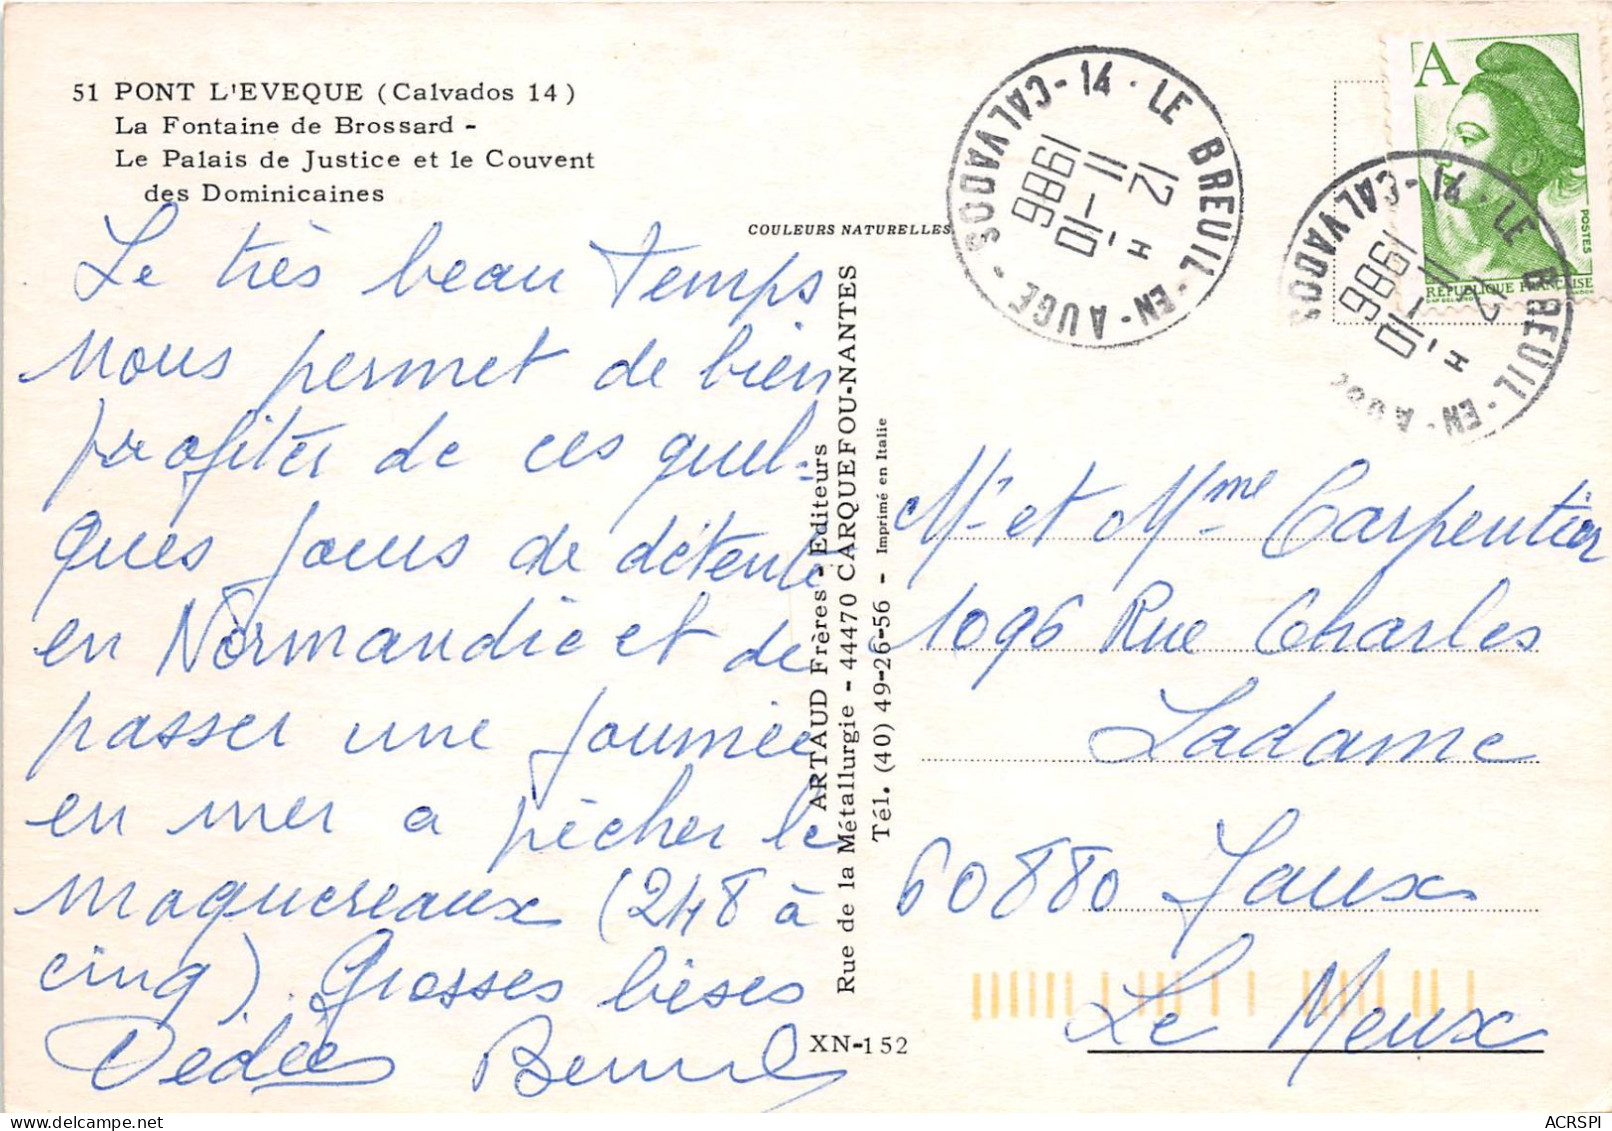 51 PONT L'EVEQUE (Calvados 14)
La Fontaine de Brossard -
Le Palais de Justice et le Couvent
des Dominicaines
COULEURS NATURELLES
Le très beau temps
nous permet de bien
profiter de ces quel-
ques jours de détente
en Normandie et de
passer une journée
en mer a pêcher le
maquereaux (248 à
cinq). Grosses bises
Dédée
ARTAUD Frères - Editeurs
Rue de la Métallurgie - 44470 CARQUEFOU-NANTES
Tél. (40) 49-26-56 - Imprimé en Italie
XN-152
14 · LE BREUIL-EN-AUGE - CALVADOS -
12 H
11 -10
1986
14 · LE BREUIL-EN-AUGE CALVADOS -
12 H
11 -10
1986
A
POSTES
RÉPUBLIQUE FRANÇAISE
Mr et Mme Carpentier
1096 Rue Charles
Ladame
60880 Jaux
Le Meux
ACRSPI